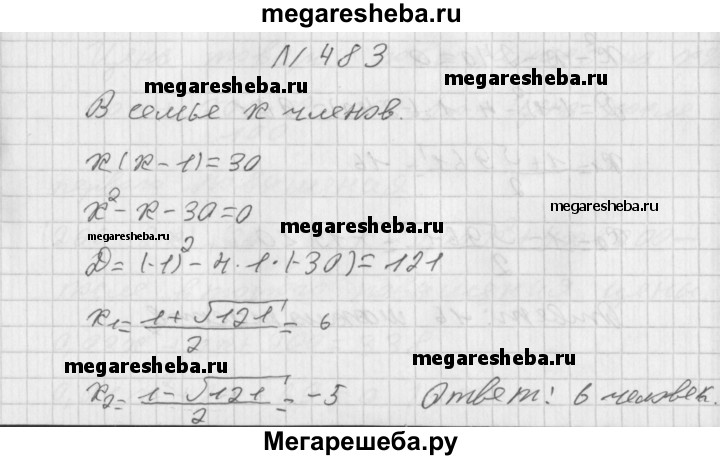 megaresheba.ru
№ 483
megaresheba.ru megaresheba.ru
В семье x членов.
x(x-1)=30
x²-x-30=0
megaresheba.ru megaresheba.ru megaresheba.ru
D=(-1)²-4·1·(-30)=121
x₁=(1+√121)/2=6
megaresheba.ru megaresheba.ru
x₂=(1-√121)/2=-5 Ответ: 6 человек.
Мегарешеба.ру